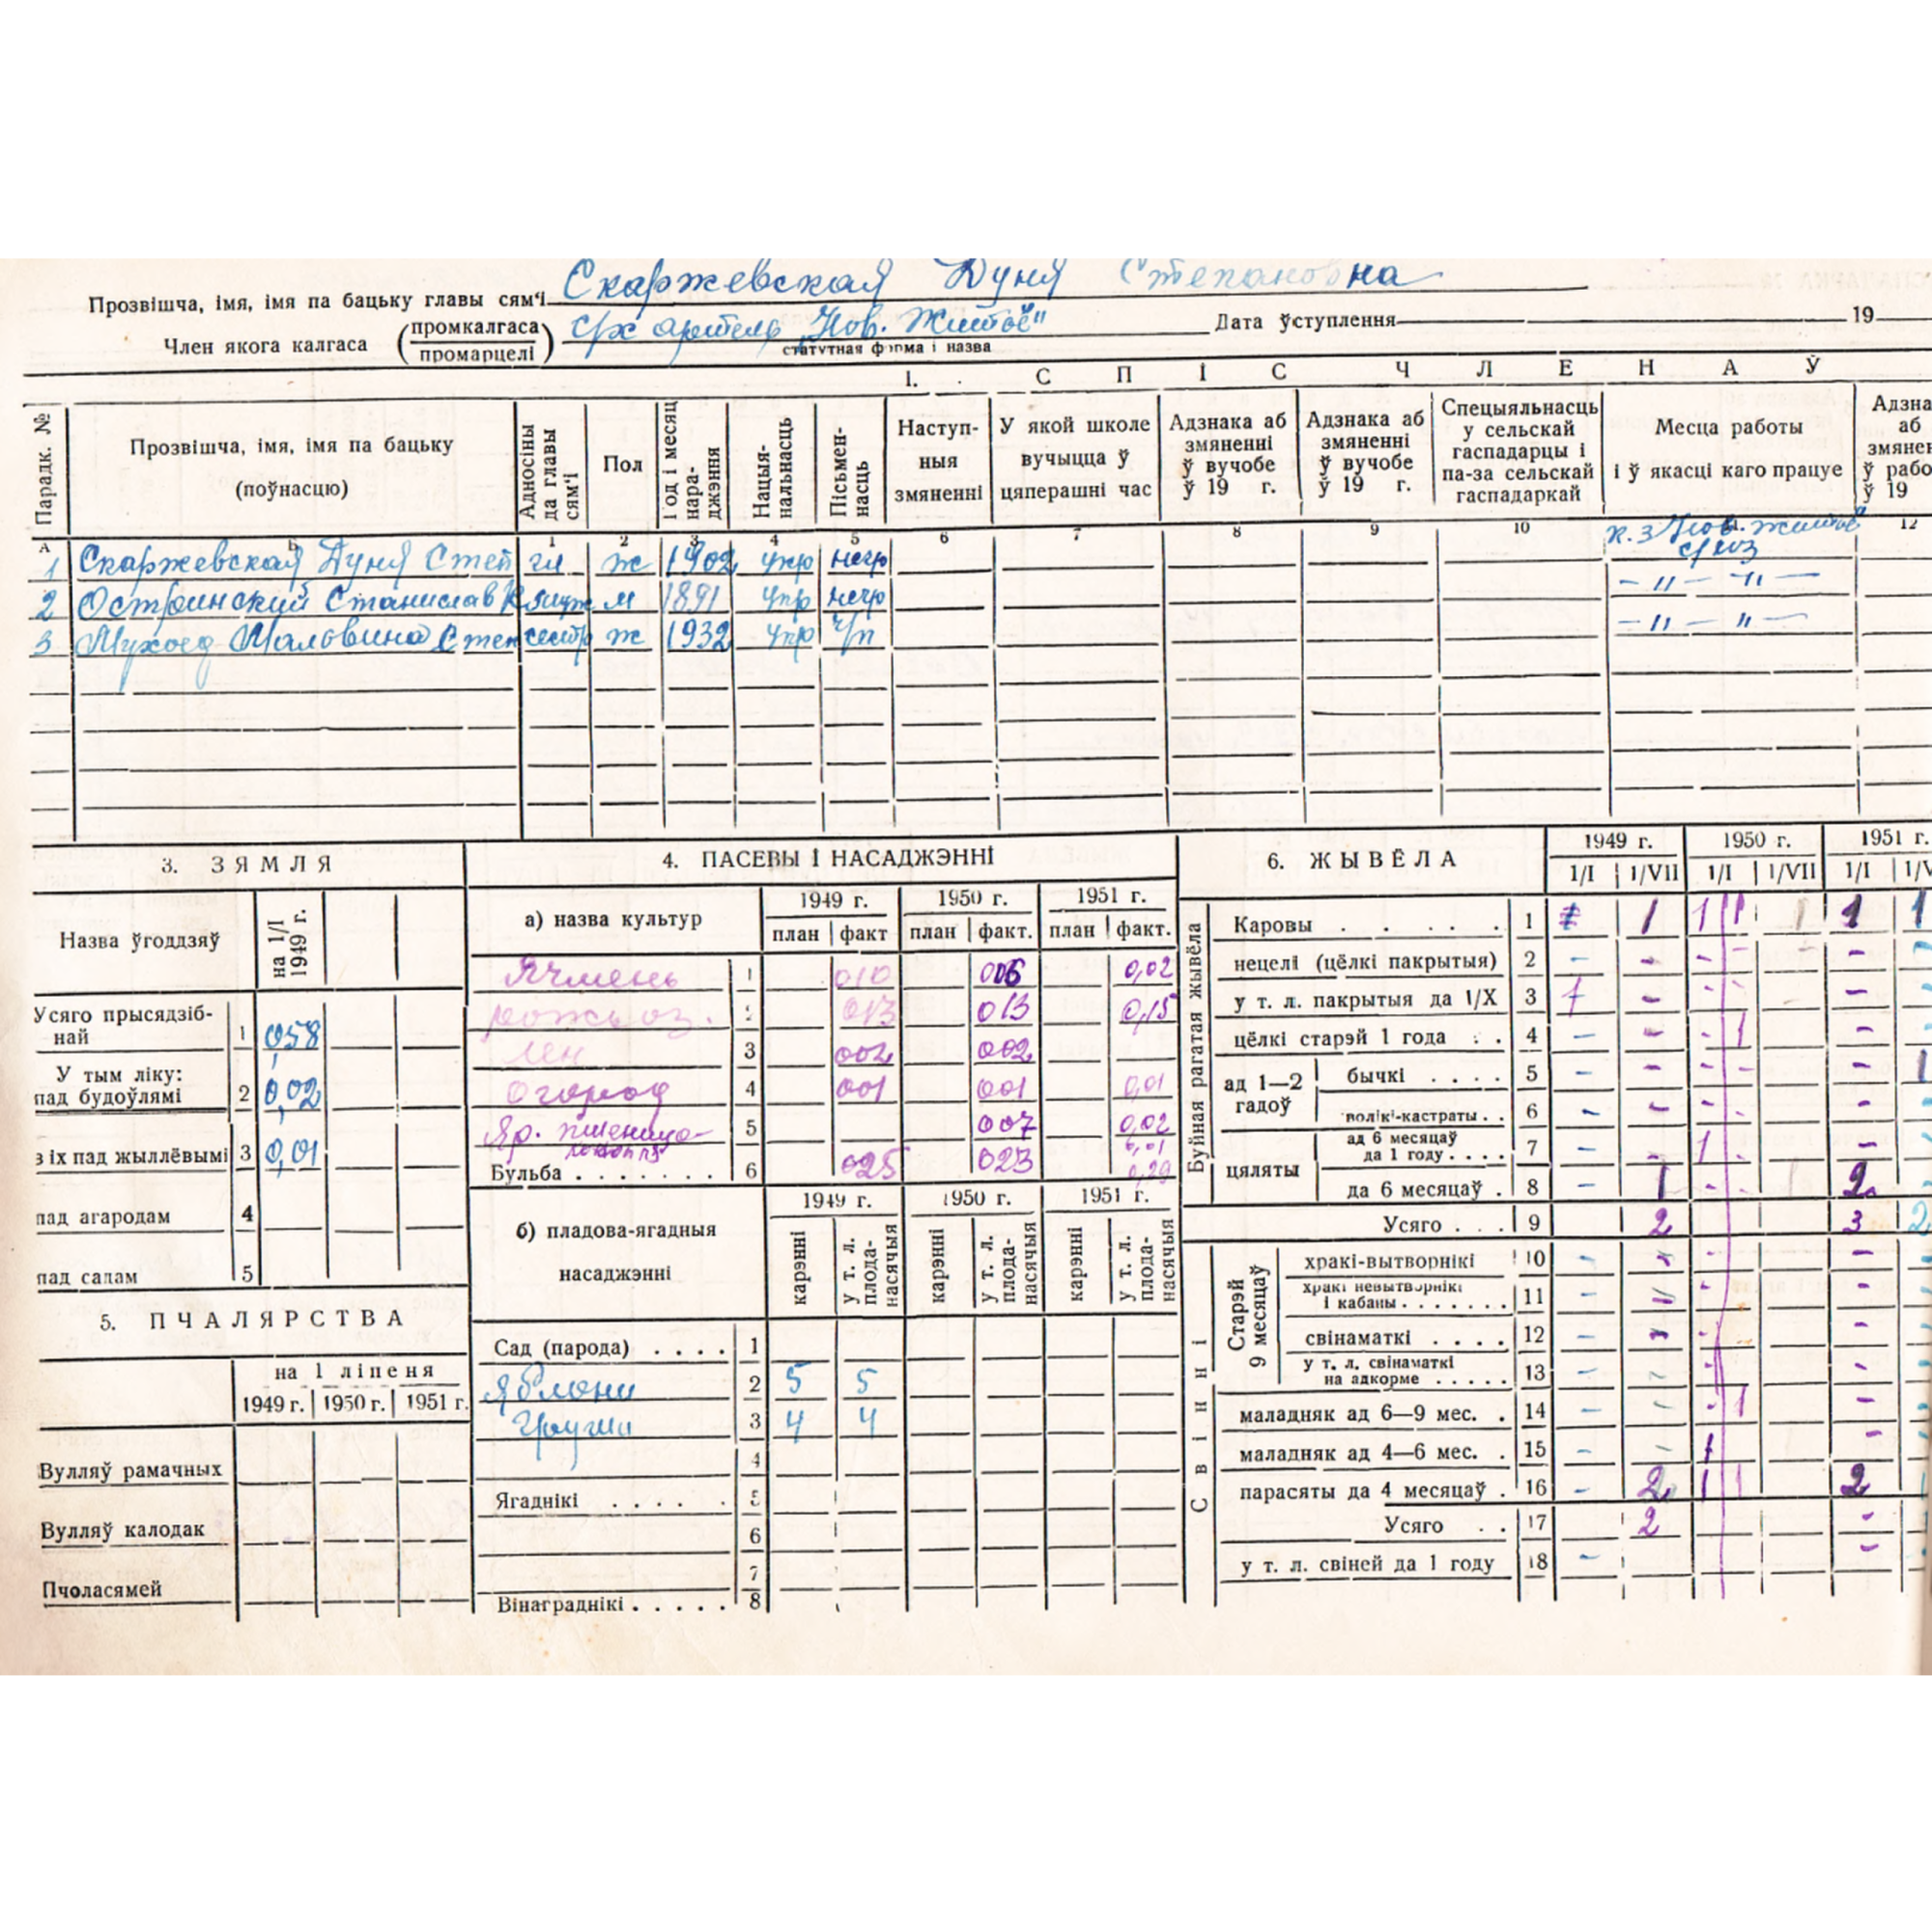 Прозвішча, імя, імя па бацьку главы сям'і Скаржевская Дуня Степановна
Член якога калгаса (промкалгаса / промарцелі) с/х артель „Нов. Житьё" Дата ўступлення 19
статутная форма і назва
І. С П І С Ч Л Е Н А Ў
Парадк. № Прозвішча, імя, імя па бацьку (поўнасцю) Адносіны да главы сям'і Пол Год і месяц нараджэння Нацыянальнасць Пісьменнасць Наступныя змяненні У якой школе вучыцца ў цяперашні час Адзнака аб змяненні ў вучобе ў 19 г. Адзнака аб змяненні ў вучобе ў 19 г. Спецыяльнасць у сельскай гаспадарцы і па-за сельскай гаспадаркай Месца работы і ў якасці каго працуе Адзна аб змянен ў рабо ў 19
А Б 1 2 3 4 5 6 7 8 9 10 12
1 Скаржевская Дуня Степ гл ж 1902 укр негр к.з Нов. житьё
2 Остринский Станислав муж м 1891 укр негр — " — " —
3 Мухоед Мальвина Степ сестр ж 1932 укр ч/п — " — " —
3. ЗЯМЛЯ
Назва ўгоддзяў на 1/І 1949 г.
Усяго прысядзібнай 1 0,58
У тым ліку: пад будоўлямі 2 0,02
з іх пад жыллёвымі 3 0,01
пад агародам 4
пад садам 5
5. ПЧАЛЯРСТВА
на 1 ліпеня
1949 г. 1950 г. 1951 г.
Вулляў рамачных
Вулляў калодак
Пчоласямей
4. ПАСЕВЫ І НАСАДЖЭННІ
а) назва культур 1949 г. 1950 г. 1951 г.
план факт план факт. план факт.
Ячмень 1 010 006 0,02
рожь оз. 2 013 013 0,15
лен 3 002 002
огород 4 001 001 0,01
Яр. пшеница 5 007 0,02
конопля 0,01
Бульба 6 025 023 0,29
б) пладова-ягадныя насаджэнні 1949 г. 1950 г. 1951 г.
карэнні у т. л. пладанасячыя карэнні у т. л. пладанасячыя карэнні у т. л. пладанасячыя
Сад (парода) 1
Яблони 2 5 5
Груши 3 4 4
4
Ягаднікі 5
6
7
Вінаграднікі 8
6. ЖЫВЁЛА 1949 г. 1950 г. 1951 г.
1/І 1/VІІ 1/І 1/VІІ 1/І 1/V
Буйная рагатая жывёла
Каровы 1 1 1 1 1 1
нецелі (цёлкі пакрытыя) 2 - - - - -
у т. л. пакрытыя да І/Х 3 1 - - -
цёлкі старэй 1 года 4 - - 1 -
ад 1—2 гадоў бычкі 5 - - - - - 1
волікі-кастраты 6 - - - - -
цяляты ад 6 месяцаў да 1 году 7 - - 1 -
да 6 месяцаў 8 - 1 - - 2
Усяго 9 2 3 2
Свінні
Старэй 9 месяцаў
хракі-вытворнікі 10 - - - -
хракі невытворнікі і кабаны 11 - - - -
свінаматкі 12 - - - -
у т. л. свінаматкі на адкорме 13 - - - -
маладняк ад 6—9 мес. 14 - - - 1 -
маладняк ад 4—6 мес. 15 - - 1 -
парасяты да 4 месяцаў 16 - 2 1 1 2
Усяго 17 2 -
у т. л. свіней да 1 году 18 - -